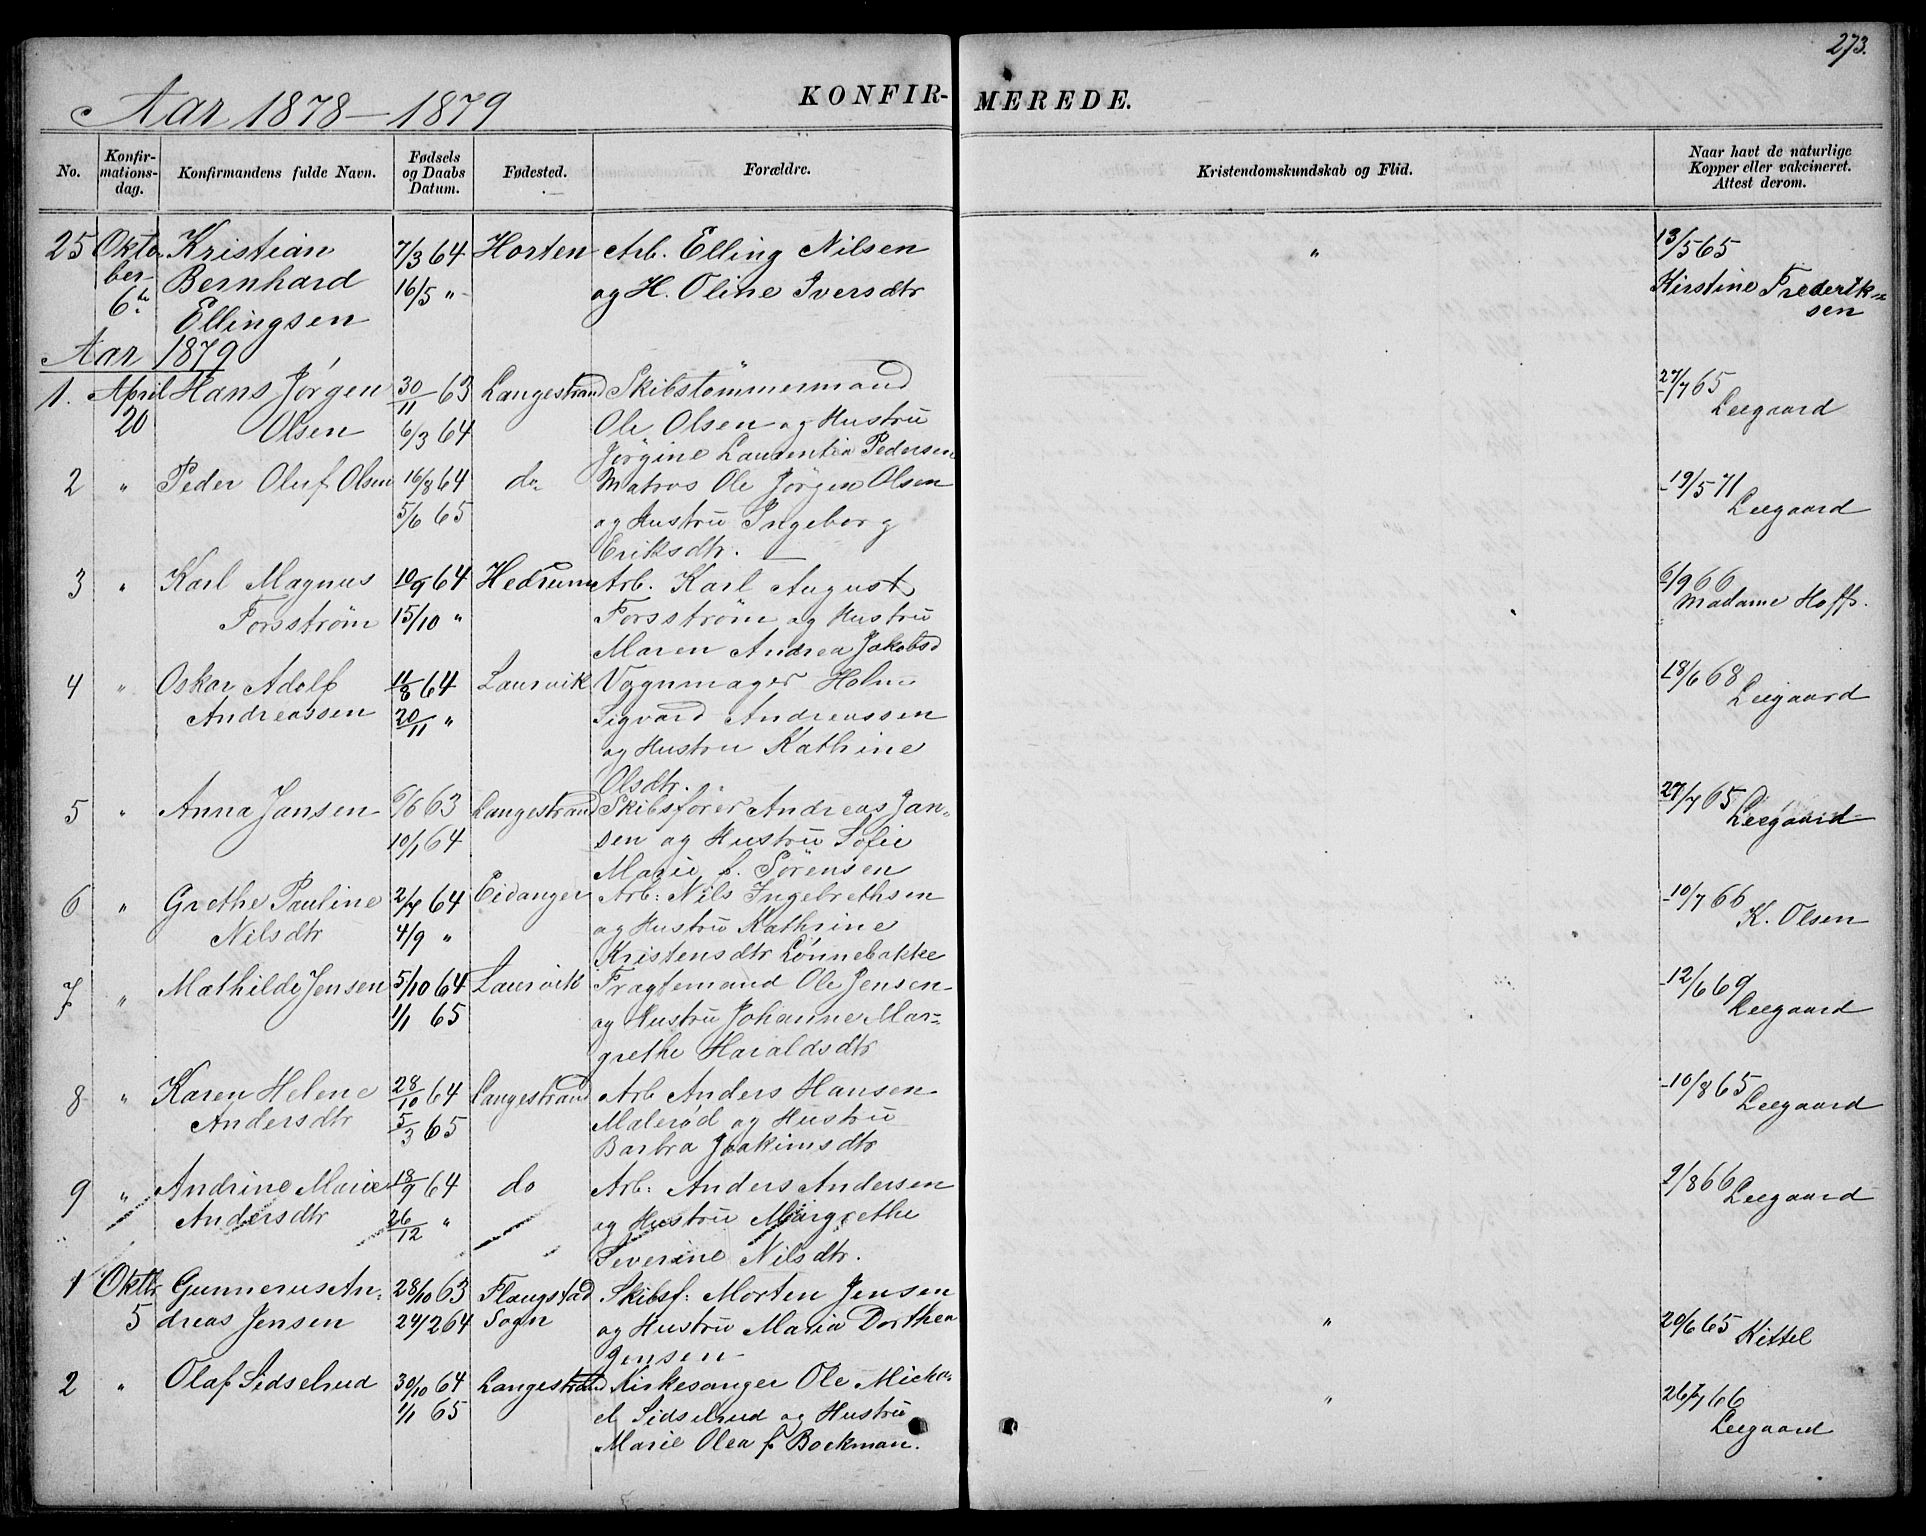 273.
Aar 1878-1879
KONFIRMEREDE.
No.
Konfir-
mations-
dag.
Konfirmandens fulde Navn.
Fødsels
og Daabs
Datum.
Fødested.
Forældre.
Kristendomskundskab og Flid.
Naar havt de naturlige
Kopper eller vakcineret.
Attest derom.
25 Okto Kristian 7/3 64 Horten Arb. Elling Nilsen " 13/5 65
ber Bernhard 16/5 " og H. Oline Iversdtr Kirstine Frederik=
6te Ellingsen sen
Aar 1879
1. April Hans Jörgen 30/11 63 Langestrand Skibstømmermand 27/7 65
20 Olsen 6/3 64 Ole Olsen og Hustru Leegaard
Jörgine Laurentia Pedersen
2 " Peder Oluf Olsen 16/8 64 do Matros Ole Jörgen Olsen 19/5 71
5/6 65 og Hustru Ingeborg Leegaard
Eriksdtr.
3 " Karl Magnus 10/9 64 Hedrum Arb. Karl August 6/9 66
Forsström 15/10 " Forsström og Hustru Madame Hoff.
Maren Andrea Jakobsd
4 " Oskar Adolf 11/8 64 Laurvik Vognmager Holm 18/6 68
Andreassen 20/11 " Sigvard Andreassen Leegaard
og Hustru Kathrine
Olsdtr.
5 " Anna Jansen 63 Langestrand Skibsfører Andreas Jan= 27/7 65
10/1 64 sen og Hustru Sofie Leegaard
Marie f. Sörensen
6 " Grethe Pauline 2/7 64 Eidanger Arb: Nils Ingebrethsen 10/7 66
Nilsdtr 4/9 " og Hustru Kathrine K. Olsen
Kristensdtr Lönnebakke
7 " Mathilde Jensen 5/10 64 Laurvik Fragtemand Ole Jensen 12/6 69
1/1 65 og Hustru Johanne Mar= Leegaard
grethe Haraldsdtr
8 " Karen Helene 28/10 64 Langestrand Arb Anders Hansen 10/8 65
Andersdtr 5/3 65 Maleröd og Hustru Leegaard
Barbra Joakimsdtr
9 " Andrine Marie 18/9 64 do Arb: Anders Andersen 2/8 66
Andersdtr 26/12 " og Hustru Margrethe Leegaard
Severine Nilsdtr.
1 Oktbr Gunnerus An= 28/10 63 Flangstad Skibsf: Morten Jensen
5 dreas Jensen 24/2 64 Sogn og Hustru Maria Dorthea " 20/6 65 Kittel
Jensen
2 " Olaf Sidselrud 30/10 64 Langestrand Kirkesanger Ole Micha=
1/1 65 el Sidselrud og Hustru " 66
Marie Olea f Bockman. Leegaard